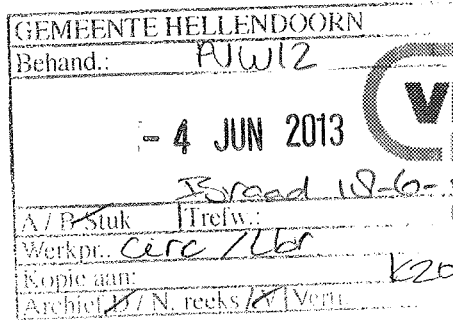 GEMEENTE HELLENDOORN
Behand.: PJW12
V
- 4 JUN 2013
Braad 18-6-
A / B Stuk Trefw.:
Werkpr.: Circ / Lbr
Kopie aan:
Archief D / N. reeks / V Vertr.